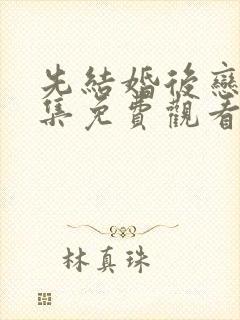 先結婚後戀
集免費觀看
林真珠